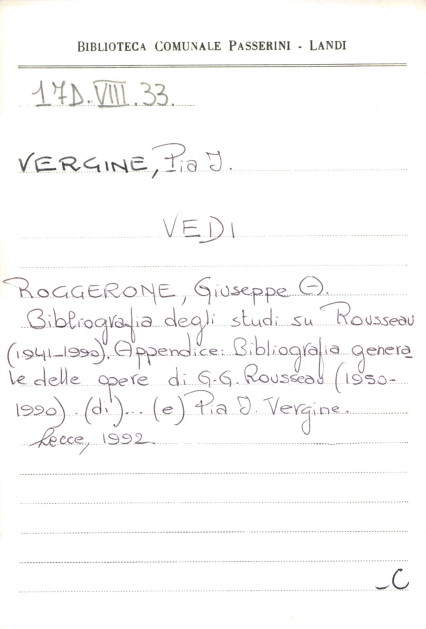 BIBLIOTECA COMUNALE PASSERINI - LANDI
17D.VIII.33.
VERGINE, Pia I.
VEDI
ROGGERONE, Giuseppe A.
Bibliografia degli studi su Rousseau
(1941-1990). Appendice: Bibliografia genera
le delle opere di G.G. Rousseau (1950-
1990). (di)... (e) Pia I. Vergine.
Lecce, 1992.
_C